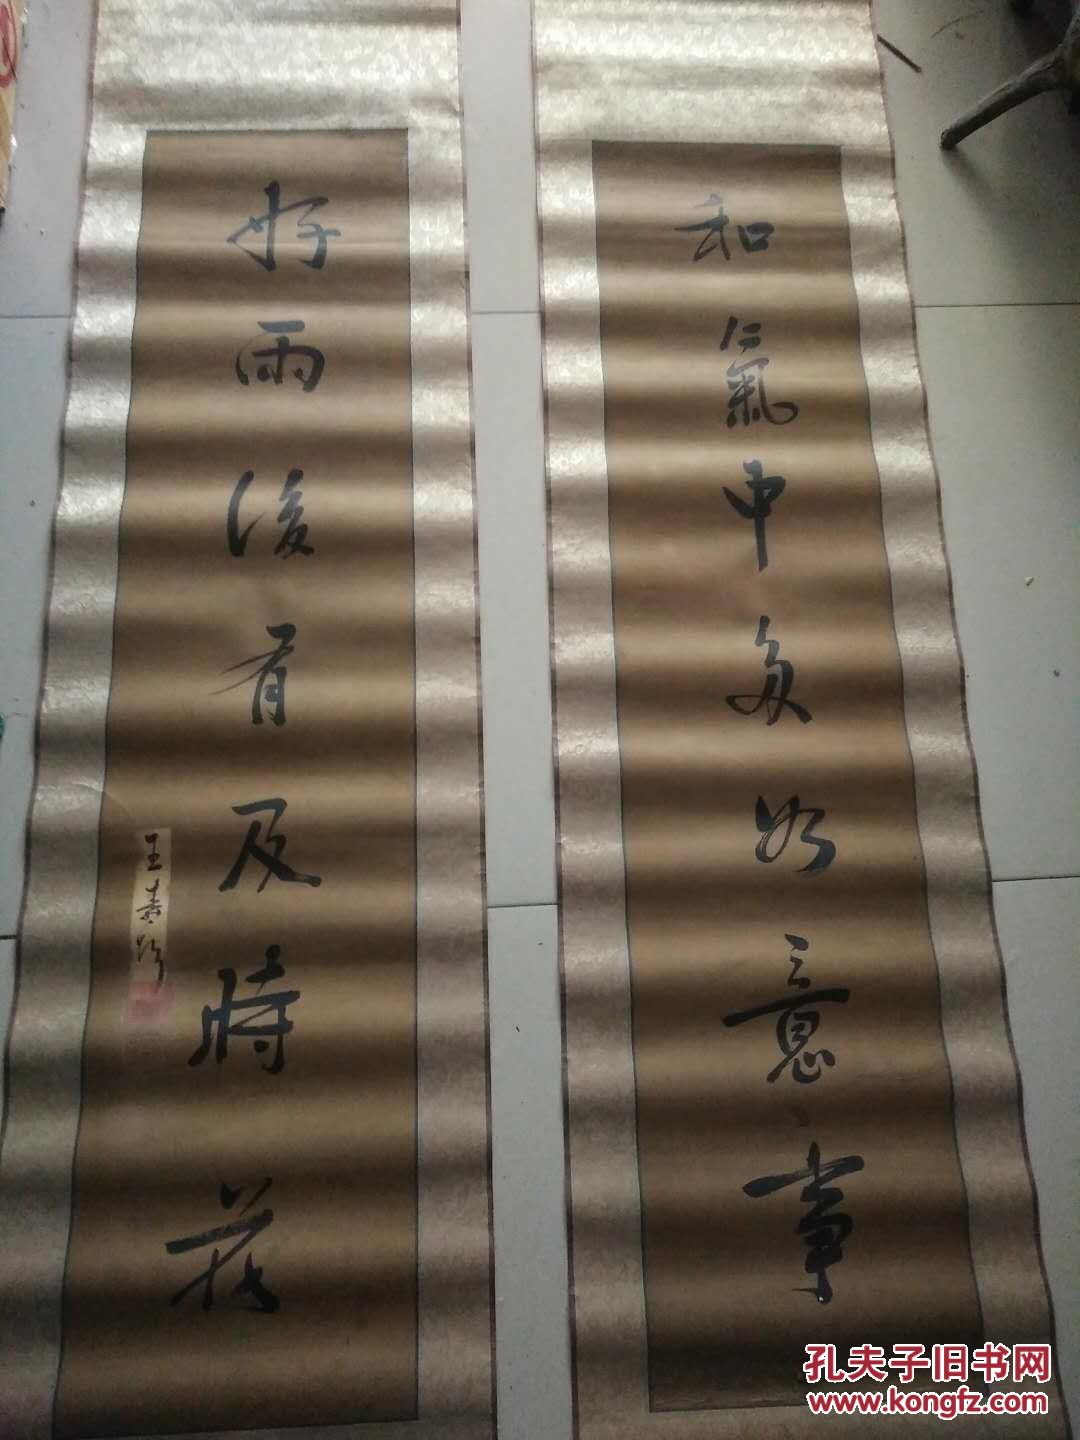 和氣中多如意事
好雨後有及時花
王壽
孔夫子旧书网
www.kongfz.com